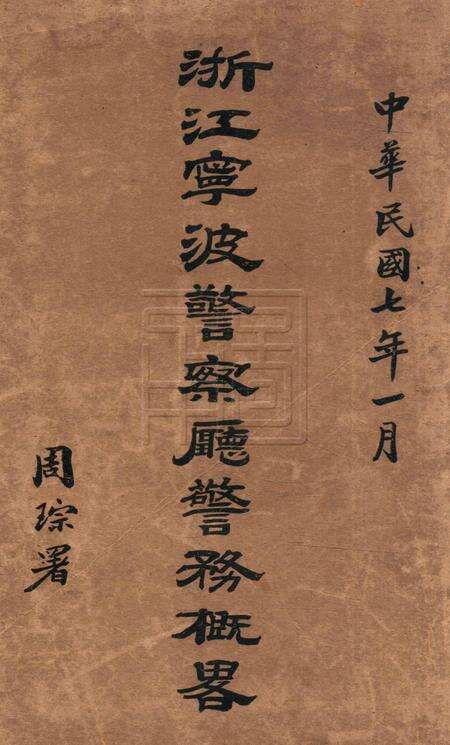 中華民國七年一月
浙江寧波警察廳警務概畧
周琮署